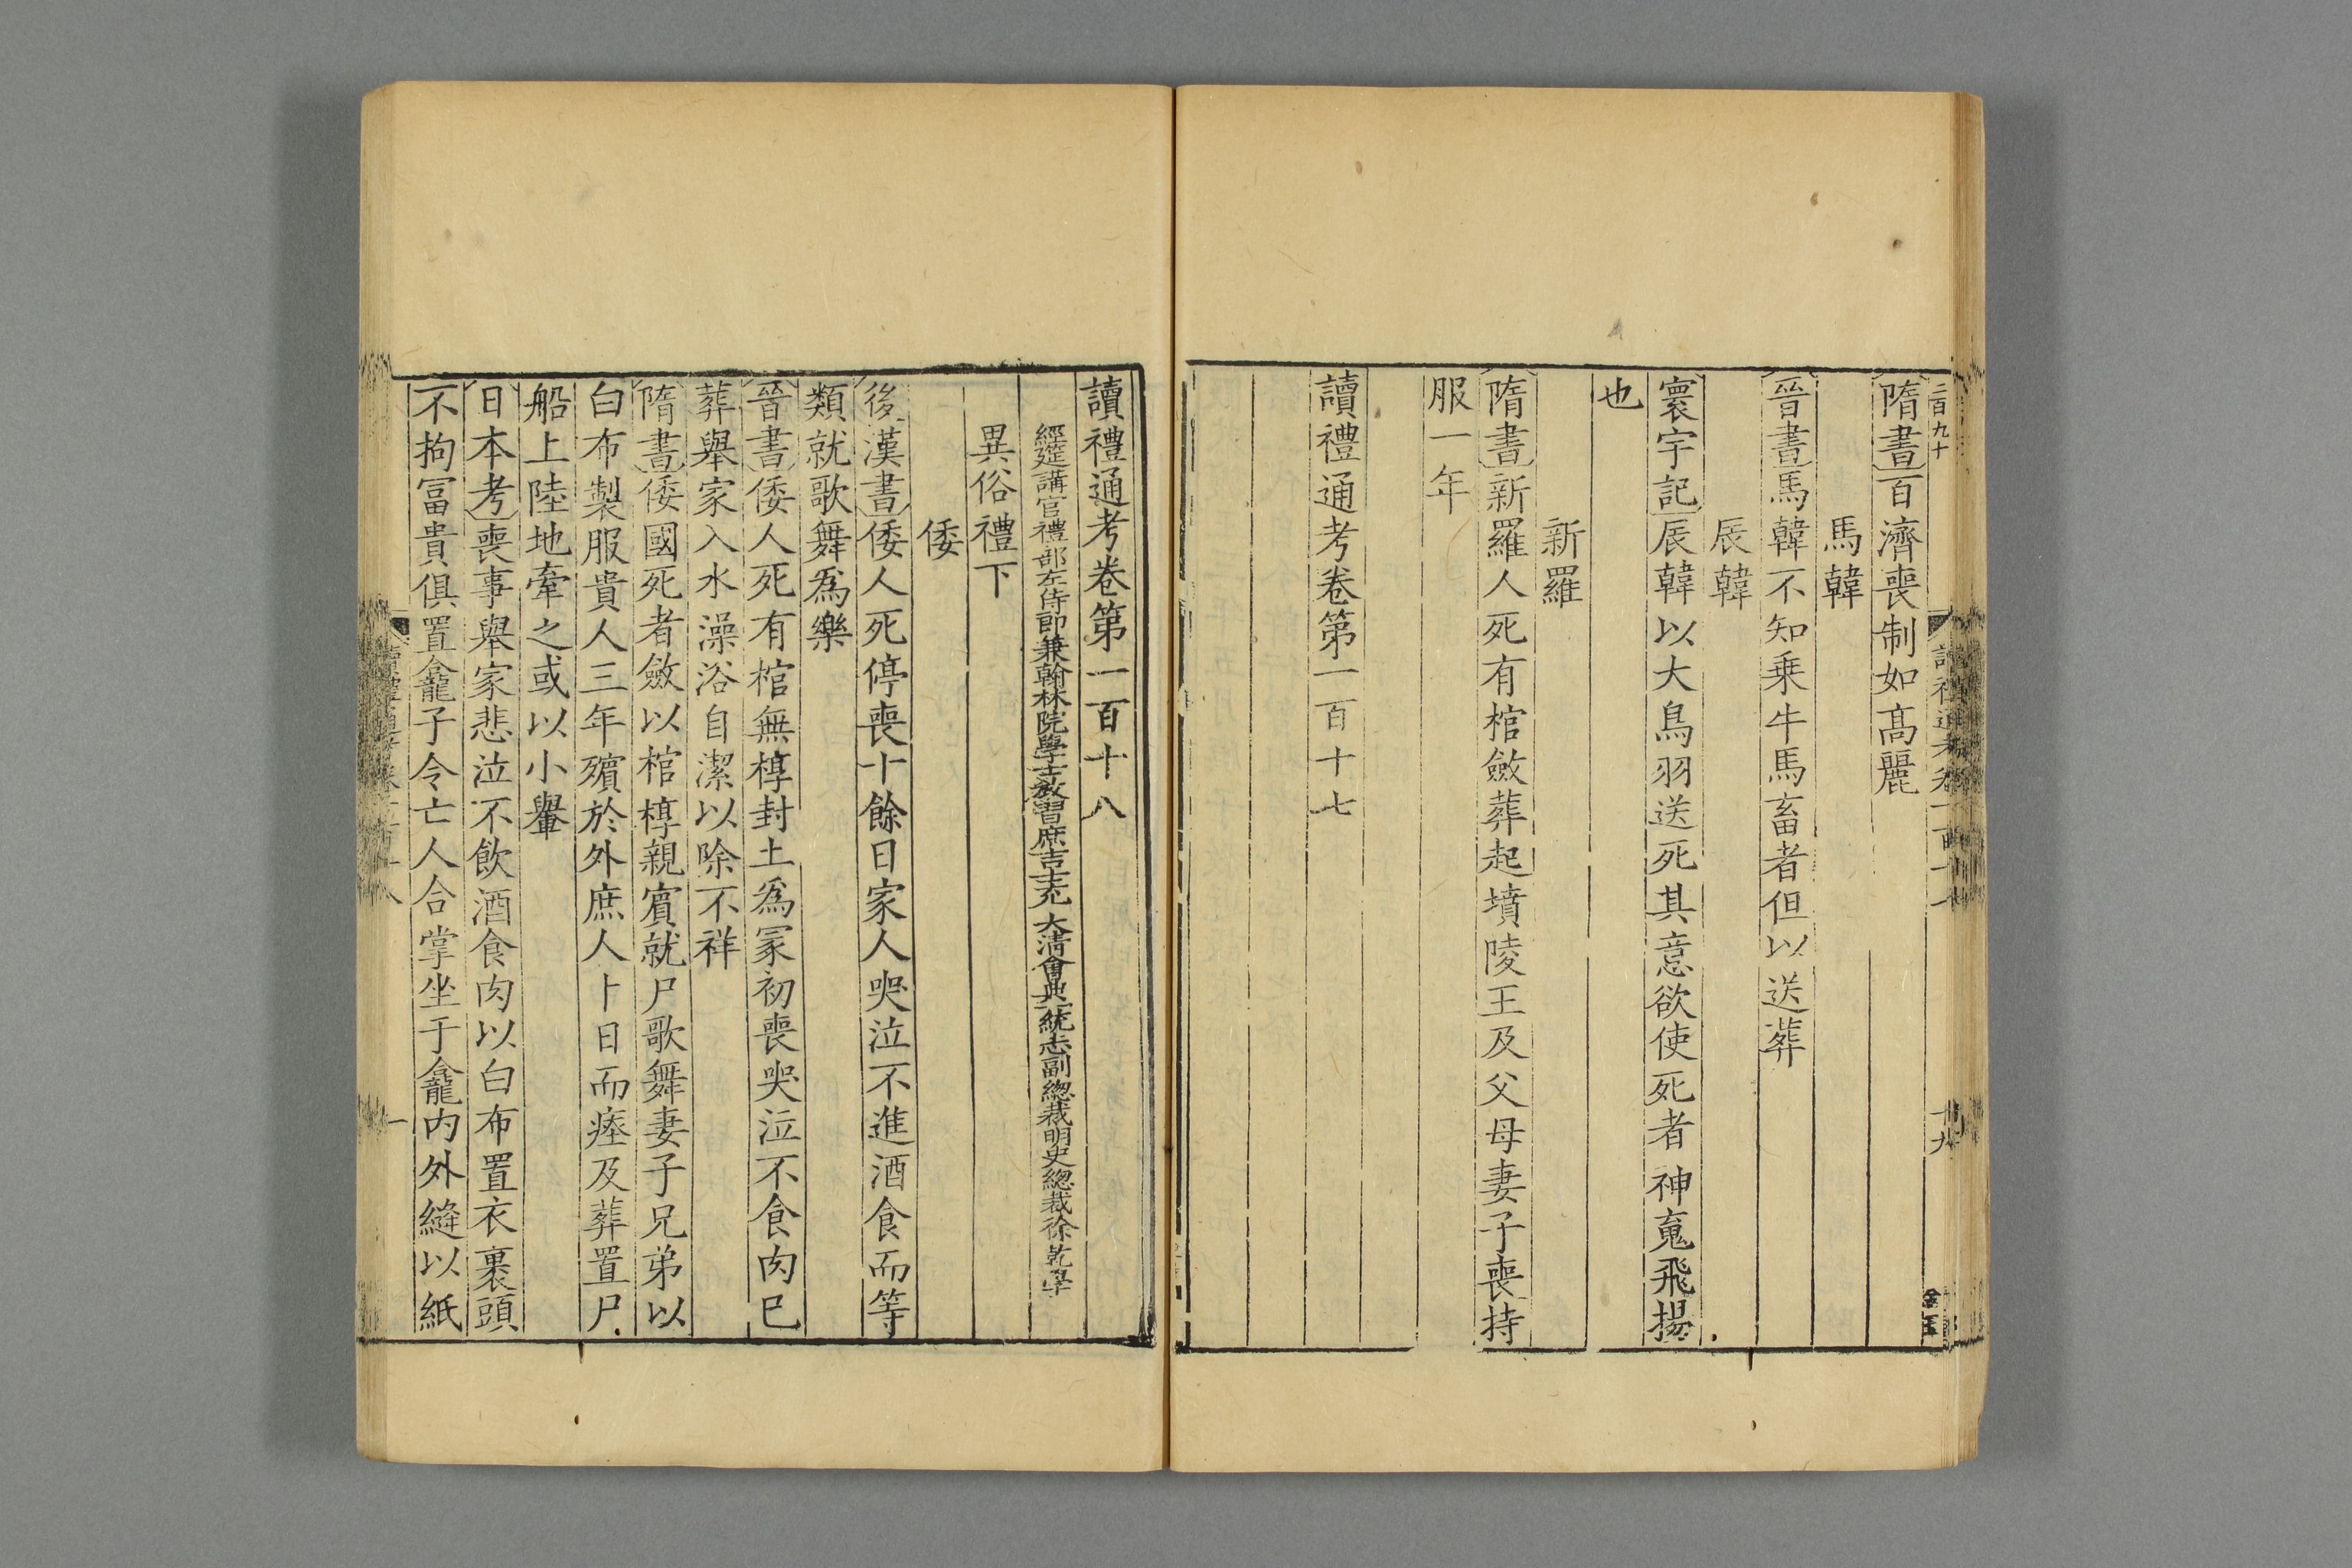 二百九十
隋書百濟喪制如高麗
馬韓
晉書馬韓不知乘牛馬畜者但以送葬
辰韓
寰宇記辰韓以大鳥羽送死其意欲使死者神䰟飛揚
也
新羅
隋書新羅人死有棺斂葬起墳陵王及父母妻子喪持
服一年
讀禮通考卷第一百十七
讀禮通考卷第一百十八
經筵講官禮部左侍郎兼翰林院學士教習庶吉士充 大清會典一統志副總裁明史總裁徐乾學
異俗禮下
倭
後漢書倭人死停喪十餘日家人哭泣不進酒食而等
類就歌舞爲樂
晉書倭人死有棺無椁封土爲冡初喪哭泣不食肉已
葬舉家入水澡浴自潔以除不祥
隋書倭國死者斂以棺椁親賓就尸歌舞妻子兄弟以
白布製服貴人三年殯於外庶人卜日而瘞及葬置尸
船上陸地牽之或以小轝
日本考喪事舉家悲泣不飲酒食肉以白布置衣裹頭
不拘冨貴俱置龕子令亡人合掌坐于龕内外縫以紙